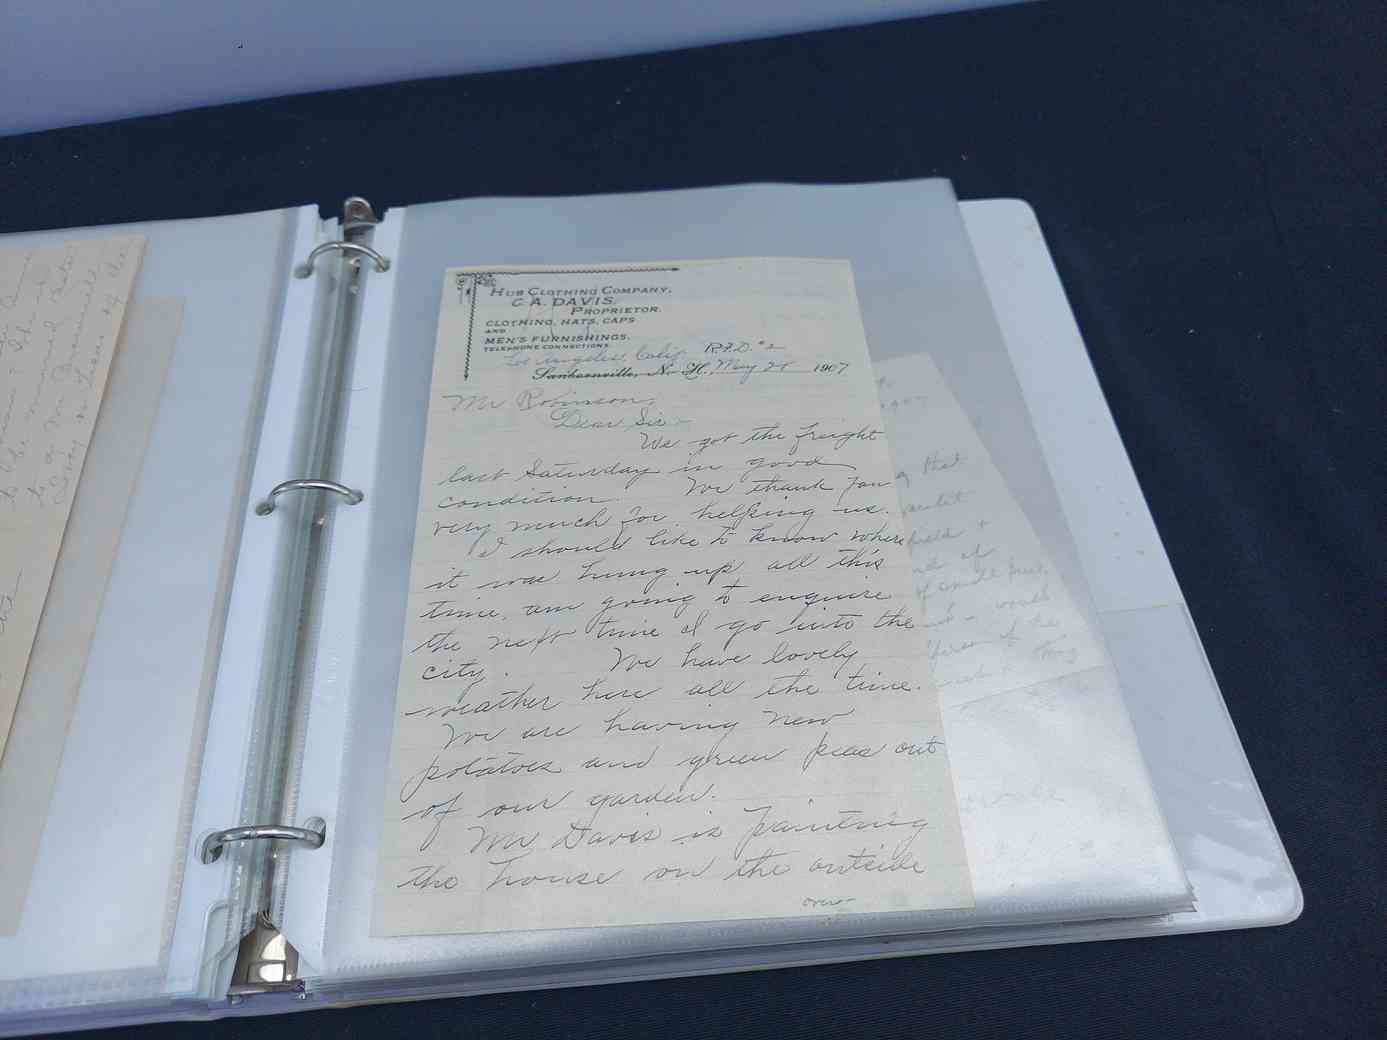 HUB CLOTHING COMPANY.
C. A. DAVIS.
PROPRIETOR.
CLOTHING, HATS, CAPS
AND
MEN'S FURNISHINGS.
TELEPHONE CONNECTIONS.
Los Angeles, Calif. R.F.D. #2
Sanbornville, N. H. May 1907
Mr Robinson,
Dear Sir
We got the freight
last Saturday in good
condition. We thank you
very much for helping us.
I should like to know where
it was hung up all this
time, am going to enquire
the next time I go into the
city. We have lovely
weather here all the time.
We are having new
potatoes and green peas out
of our garden.
Mr Davis is painting
the house on the outside
over
that
field +
of small
would
of the